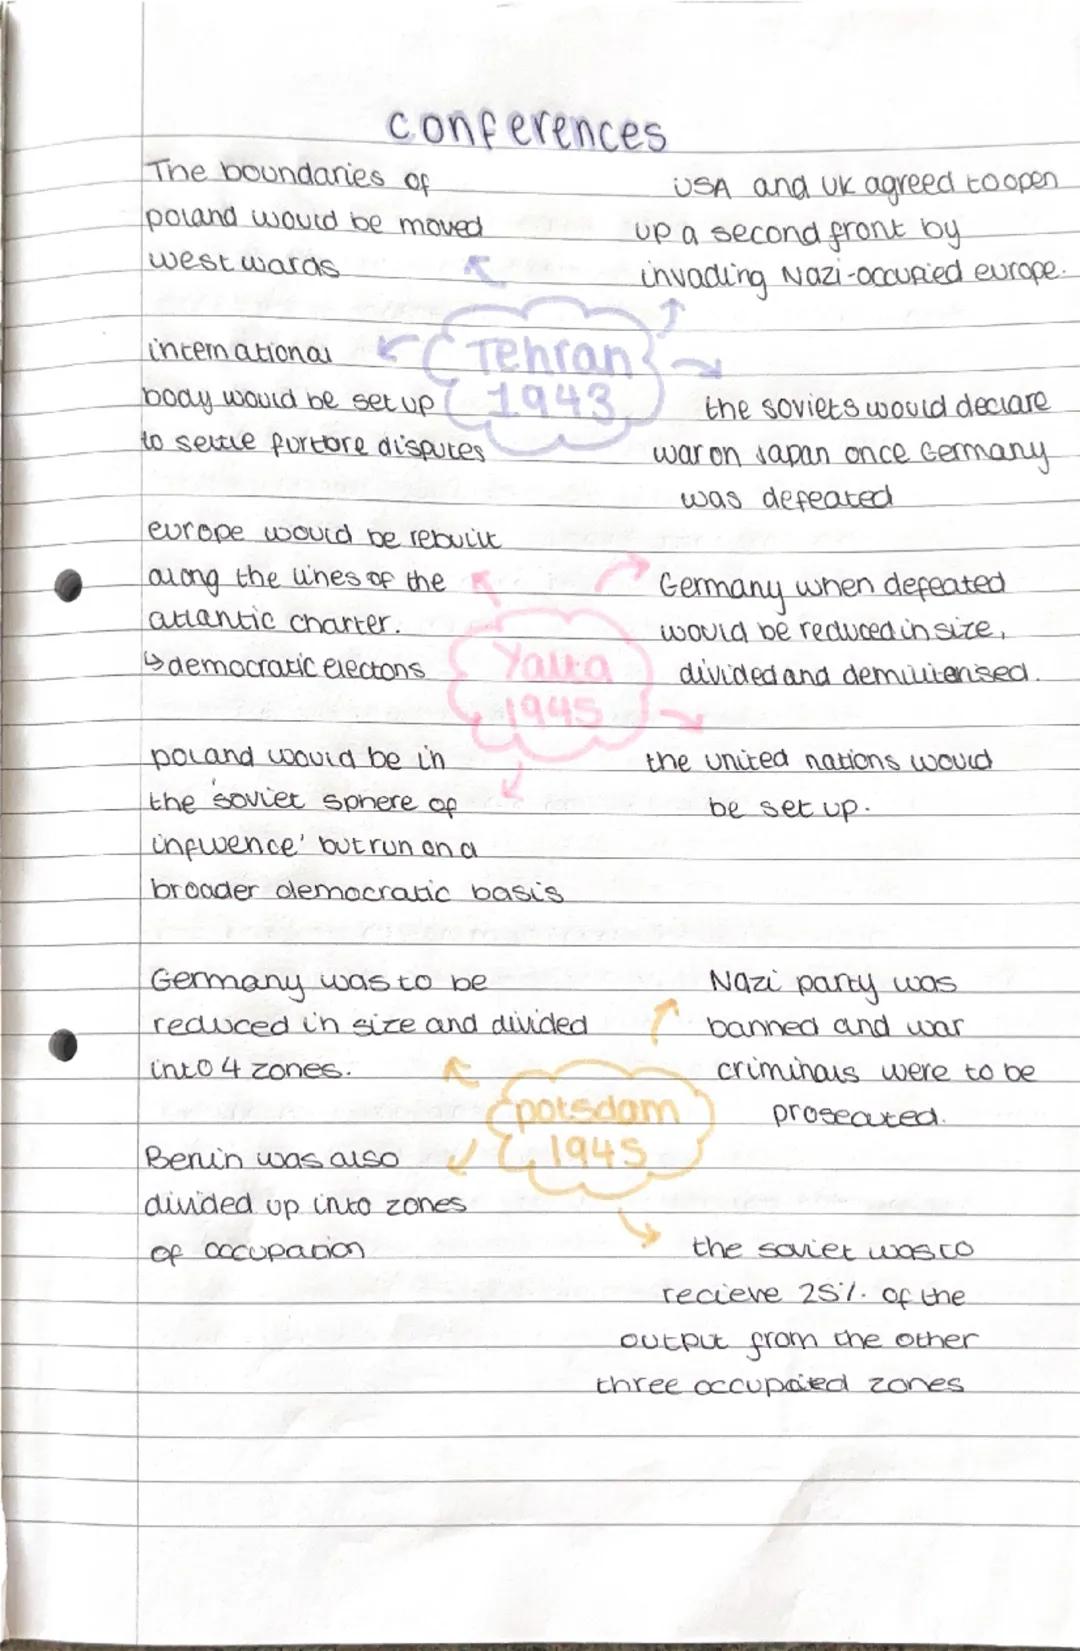 conferences
The boundaries of
poland would be moved
westwards
USA and UK agreed to open
up a second front by
invading Nazi-occupied europe.
Tehran
1943
international
body would be set up
to settle furtore disputes
the soviets would declare
war on Japan once Germany
was defeated
europe would be rebuilt
along the lines of the
atlantic charter.
↳democratic electons
Germany when defeated
would be reduced in size,
divided and demiliterised.
Yalta
1945
poland would be in
the 'soviet sphere of
influence' but run on a
broader democratic basis
the united nations would
be set up.
Germany was to be
reduced in size and divided
into 4 zones.
Nazi party was
banned and war
criminals were to be
prosecuted.
potsdam
1945
Berlin was also
divided up into zones
of occupation
the soviet was to
recieve 25% of the
output from the other
three occupaied zones